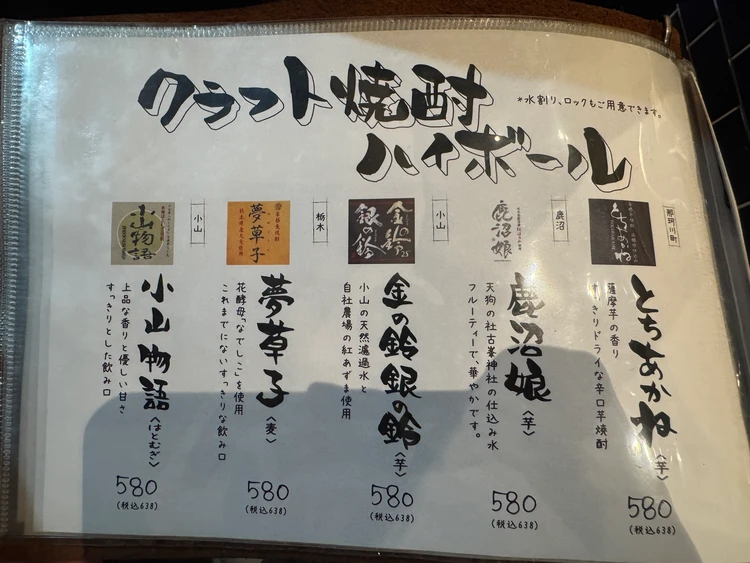 クラフト焼酎
ハイボール
*水割り、ロックもご用意できます。
那珂川町
とちあかね
とちあかね〈芋〉
薩摩芋の香り
すっきりドライな辛口芋焼酎
580
(税込638)
鹿沼
鹿沼娘
鹿沼娘〈芋〉
天狗の社古峯神社の仕込み水
フルーティーで、華やかです。
580
(税込638)
小山
金の鈴
銀の鈴
金の鈴銀の鈴〈芋〉
小山の天然濾過水と
自社農場の紅あずま使用
580
(税込638)
栃木
夢草子
夢草子〈麦〉
花酵母「なでしこ」を使用
これまでにないすっきりな飲み口
580
(税込638)
小山
小山物語
小山物語〈はとむぎ〉
上品な香りと優しい甘さ
すっきりとした飲み口
580
(税込638)